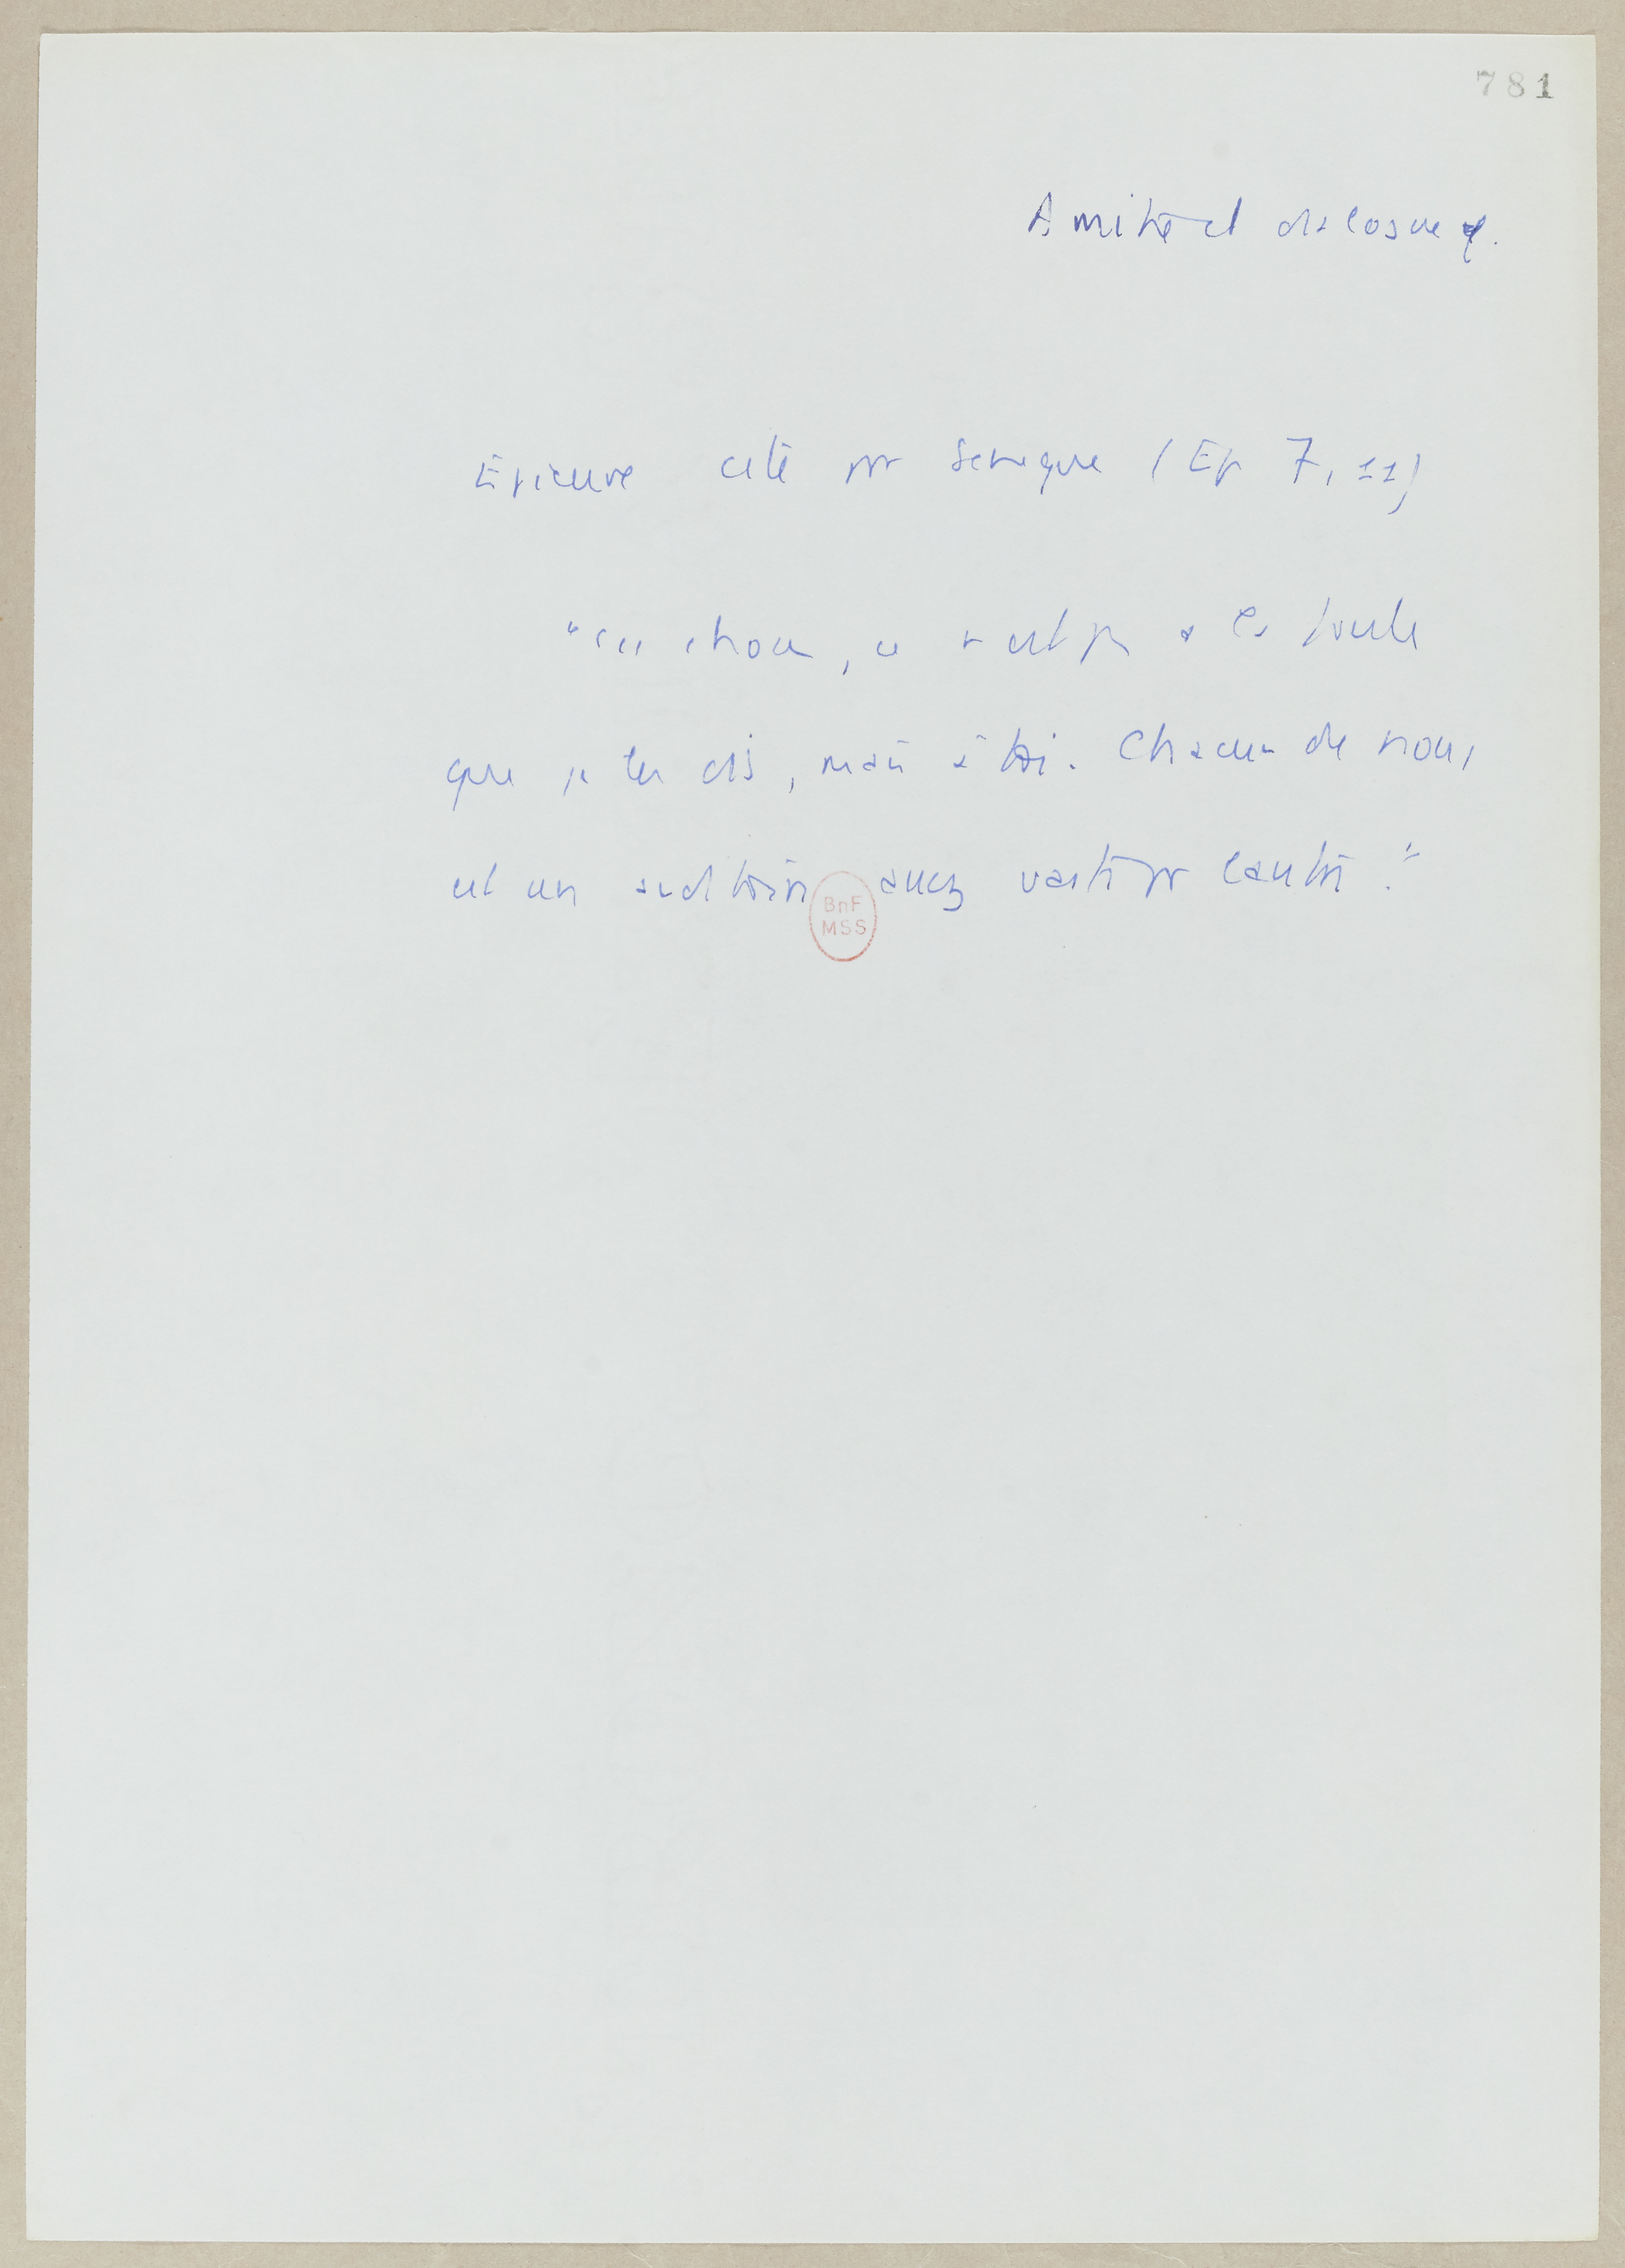 781
Amitié et dialogue.
Epicure cité par Seneque (Ep 7, 11)
"ces choses, ce n'est pas à la foule
que je les dis, mais à toi. Chacun de nous
est un auditoire assez vaste pr l'autre."
BnF
MSS